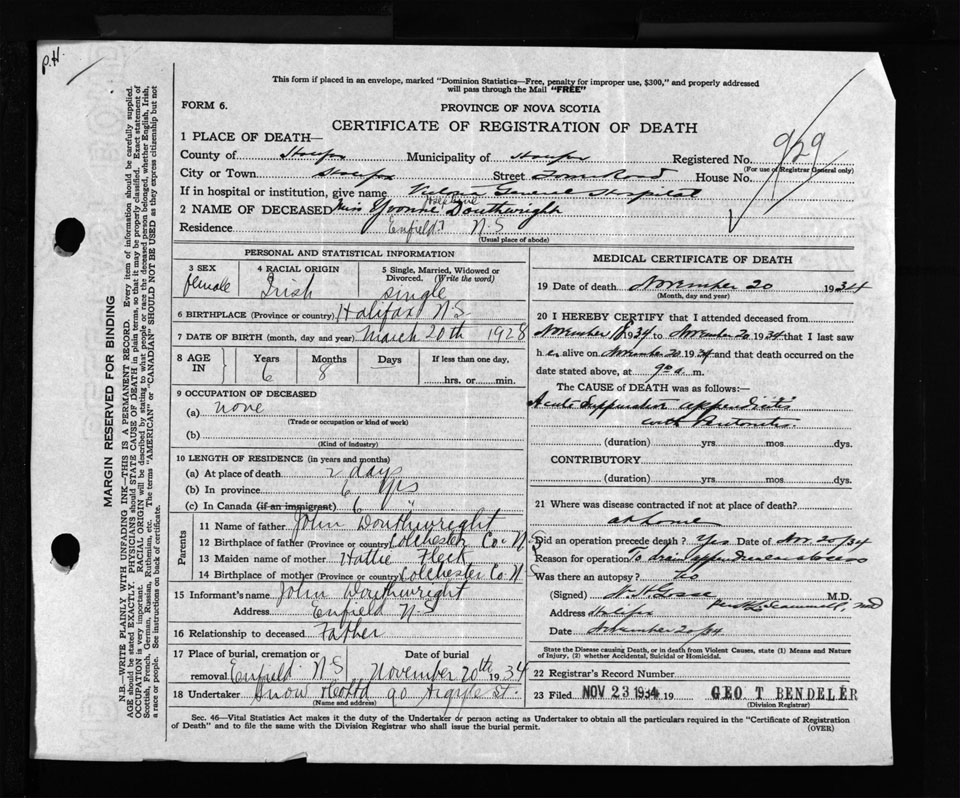 P.H.
This form if placed in an envelope, marked "Dominion Statistics—Free, penalty for improper use, $300," and properly addressed
will pass through the Mail "FREE"
FORM 6.
PROVINCE OF NOVA SCOTIA
CERTIFICATE OF REGISTRATION OF DEATH
929
1 PLACE OF DEATH—
County of Halifax Municipality of Halifax Registered No.
(For use of Registrar General only)
City or Town Halifax Street Tower Road House No.
If in hospital or institution, give name Victoria General Hospital
2 NAME OF DECEASED Miss Yvonne Douthwright
Residence Enfield N.S
(Usual place of abode)
PERSONAL AND STATISTICAL INFORMATION
3 SEX 4 RACIAL ORIGIN 5 Single, Married, Widowed or Divorced. (Write the word)
female Irish single
6 BIRTHPLACE (Province or country) Halifax N.S
7 DATE OF BIRTH (month, day and year) March 20th 1928
8 AGE IN Years Months Days If less than one day,
6 8 hrs. or min.
9 OCCUPATION OF DECEASED
(a) none
(Trade or occupation or kind of work)
(b)
(Kind of industry)
10 LENGTH OF RESIDENCE (in years and months)
(a) At place of death 2 days
(b) In province 6 yrs
(c) In Canada (if an immigrant) 6
Parents
11 Name of father John Douthwright
12 Birthplace of father (Province or country) Colchester Co. N.S
13 Maiden name of mother Hattie Fleck
14 Birthplace of mother (Province or country) Colchester Co. N.S
15 Informant's name John Douthwright
Address Enfield N.S
16 Relationship to deceased Father
17 Place of burial, cremation or removal Enfield N.S Date of burial November 20th 1934
18 Undertaker Snow & Co Ltd 90 Argyle St.
(Name and address)
MEDICAL CERTIFICATE OF DEATH
19 Date of death November 20 1934
(Month, day and year)
20 I HEREBY CERTIFY that I attended deceased from
November 18 1934 to November 20 1934 that I last saw
her alive on November 20 1934 and that death occurred on the
date stated above, at 9 a m.
The CAUSE OF DEATH was as follows:—
Acute Suppurative appendicitis
with Peritonitis.
(duration) yrs. mos. dys.
CONTRIBUTORY
(duration) yrs. mos. dys.
21 Where was disease contracted if not at place of death?
at home
Did an operation precede death? Yes Date of Nov. 20/34
Reason for operation To drain appendiceal abscess
Was there an autopsy? No
(Signed) N. H Gosse M.D.
Address Halifax
Date November 20/34
State the Disease causing Death, or in death from Violent Causes, state (1) Means and Nature
of Injury, (2) whether Accidental, Suicidal or Homicidal.
22 Registrar's Record Number
23 Filed NOV 23 1934 19 GEO T BENDELER
(Division Registrar)
Sec. 46—Vital Statistics Act makes it the duty of the Undertaker or person acting as Undertaker to obtain all the particulars required in the "Certificate of Registration
of Death" and to file the same with the Division Registrar who shall issue the burial permit.
(OVER)
MARGIN RESERVED FOR BINDING
N.B.—WRITE PLAINLY WITH UNFADING INK—THIS IS A PERMANENT RECORD. Every item of information should be carefully supplied.
AGE should be stated EXACTLY. PHYSICIANS should STATE CAUSE OF DEATH in plain terms, so that it may be properly classified. Exact statement of
OCCUPATION is very important. RACIAL ORIGIN will be described by stating to what people or race the deceased person belonged, whether English, Irish,
Scottish, French, German, Russian, Ruthenian, etc. The terms "AMERICAN" or "CANADIAN" SHOULD NOT BE USED as they express citizenship but not
a race or people. See instructions on back of certificate.